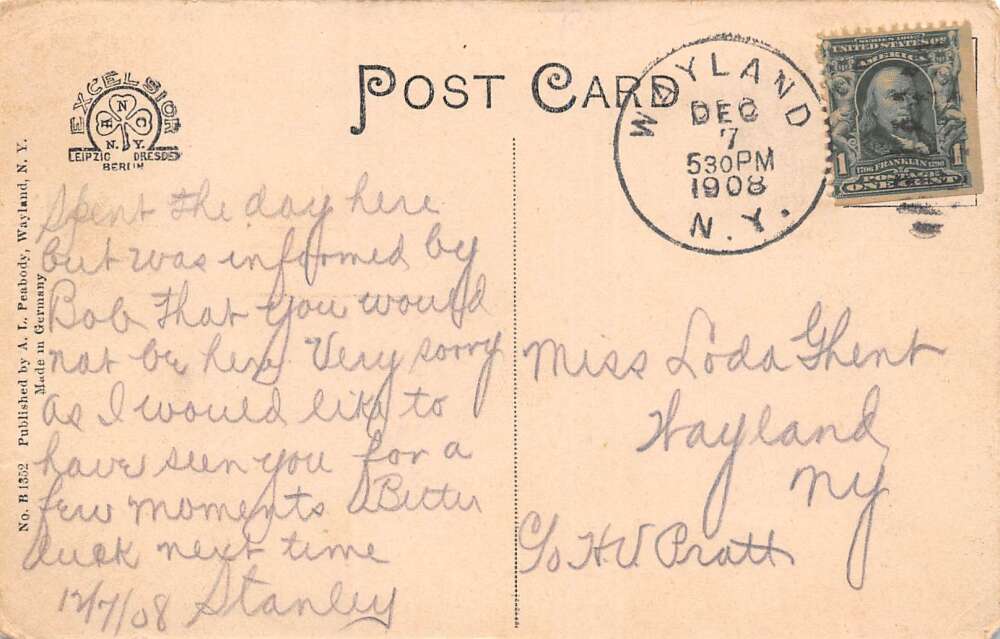 POST CARD
EXCELSIOR
N
H C
N.Y.
LEIPZIG DRESDEN
BERLIN
WAYLAND
DEC
7
530PM
1908
N.Y.
SERIES 1902
UNITED STATES OF
AMERICA
1706 FRANKLIN 1790
1 1
POSTAGE
ONE CENT
No. B 1352 Published by A. L. Peabody, Wayland, N. Y.
Made in Germany
Spent the day here
but was informed by
Bob that you would
not be here. Very sorry
as I would like to
have seen you for a
few moments Better
Luck next time
12/7/08 Stanley
Miss Loda Ghent
Wayland
NY
C/o H.V. Pratt